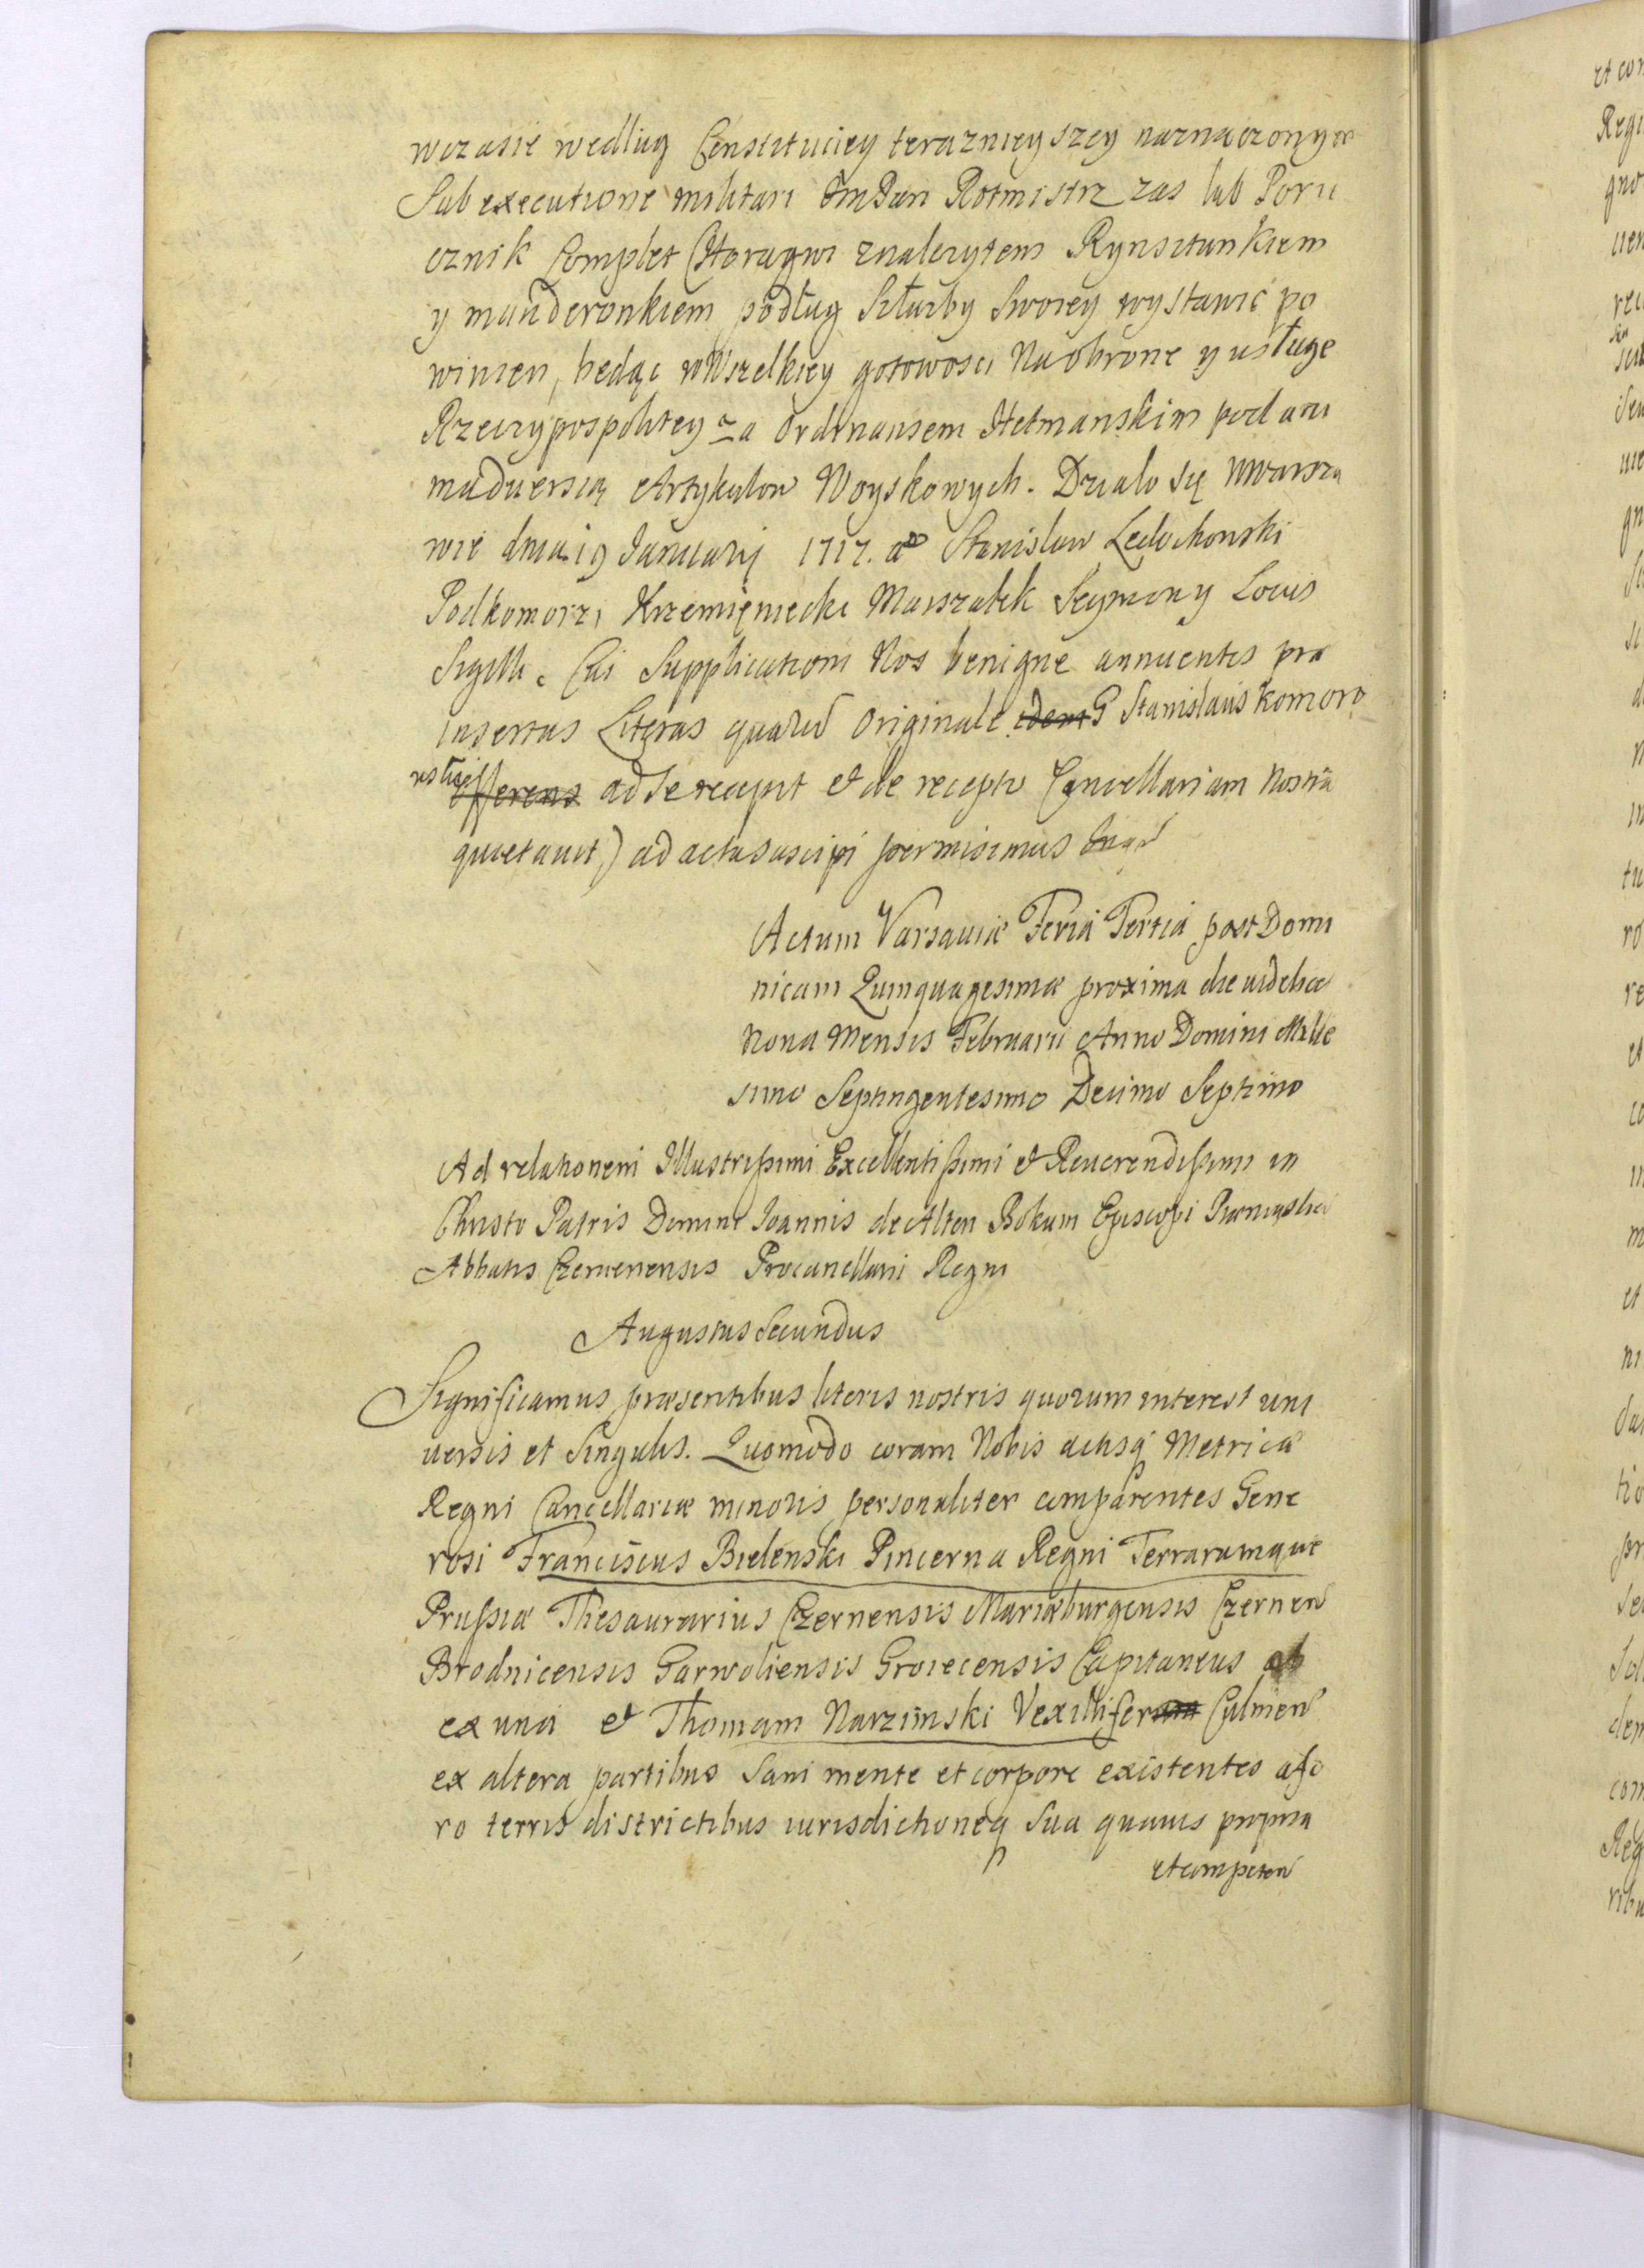 wczasie według Constituciey terazniey szey naznaczonych
Sub executione militari ImPan Rotmistrz zas lub Poru
cznik Complet Choragwi znalezytem Rynsztunkiem
y mauderonkiem podług Szłużby Swoiey wystawić po
winien, bedąc wWszelkiey gotowosci Na obrone y usługe
Rzeczypospolitey za Ordinansem Hetmanskim pod ani
madversią Artykulow Woyskowych. Działo się wWarsza
wie dnia 19 Januarij 1717. Stanislaw Ledochowski
Podkomorzi Krzemięniecki Marszałek Seymowy Locus
Sigilli. Cui Supplicationi Nos benigne annuentes præ
insertas Literas quarū Originale idem G Stanislaus Komoro
wski offerens ad se recepit et de recepto Cancellariam Nostrā
quietavit) ad acta suscipi permisimus
Actum Varsaviæ Feria Tertia post Domi
nicam Quinquagesimæ proxima die videlicæ
Nona Mensis Februarii Anno Domini Mille
simo Septingentesimo Decimo Septimo
Ad relationem Illustrissimi Excellentissimi et Reverendissimi in
Christo Patris Domini Joannis de Alten Bokum Episcopi Premislien
Abbatis Czervenensis Procancellarii Regni
Augustus Secundus
Significamus præsentibus literis nostris quorum interest uni
versis et Singulis. Quomodo coram Nobis actisq Metricæ
Regni Cancellariæ minoris personaliter comparentes Gene
rosi Franciscus Bielenski Pincerna Regni Terrarumque
Prussiæ Thesaurarius Czernensis Mariæburgensis Czernen
Brodnicensis Garwoliensis Groiecensis Capitaneus ab
ex una et Thomam Narzimski Vexillifer Culmen
ex altera partibus Sani mente et corpore existentes a fo
ro terris districtibus iurisdictioneq Sua quavis propria
et competen